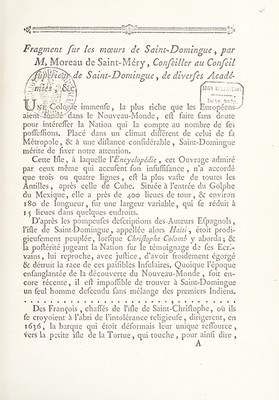 Fragment sur les mœurs de Saint-Domingue, par
M. Moreau de Saint-Méry, Conseiller au Conseil
supérieur de Saint-Domingue, de diverses Acadé-
mies, &c.
UNE Colonie immense, la plus riche que les Européens
aient fondé dans le Nouveau-Monde, est faite sans doute
pour intéresser la Nation qui la compte au nombre de ses
possessions. Placé dans un climat différent de celui de sa
Métropole, & à une distance considérable, Saint-Domingue
mérite de fixer notre attention.
Cette Isle, à laquelle l'Encyclopédie, cet Ouvrage admiré
par ceux même qui accusent son insuffisance, n'a accordé
que trois ou quatre lignes, est la plus vaste de toutes les
Antilles, après celle de Cube. Située à l'entrée du Golphe
du Mexique, elle a près de 400 lieues de tour, & environ
180 de longueur, sur une largeur variable, qui se réduit à
15 lieues dans quelques endroits.
D'après les pompeuses descriptions des Auteurs Espagnols,
l'isle de Saint-Domingue, appellée alors Haiti, étoit prodi-
gieusement peuplée, lorsque Christophe Colomb y aborda; &
la postérité jugeant la Nation sur le témoignage de ses Ecri-
vains, lui reproche, avec justice, d'avoir froidement égorgé
& détruit la race de ces paisibles Insolaires. Quoique l'époque
ensanglantée de la découverte du Nouveau-Monde, soit en-
core récente, il est impossible de trouver à Saint-Domingue
un seul homme descendu sans mélange des premiers Indiens.
Des François, chassés de l'isle de Saint-Christophe, où ils
se croyoient à l'abri de l'intolérance religieuse, dirigerent, en
1636, la barque qui étoit désormais leur unique ressource,
vers la petite isle de la Tortue, qui touche, pour ainsi dire,
A